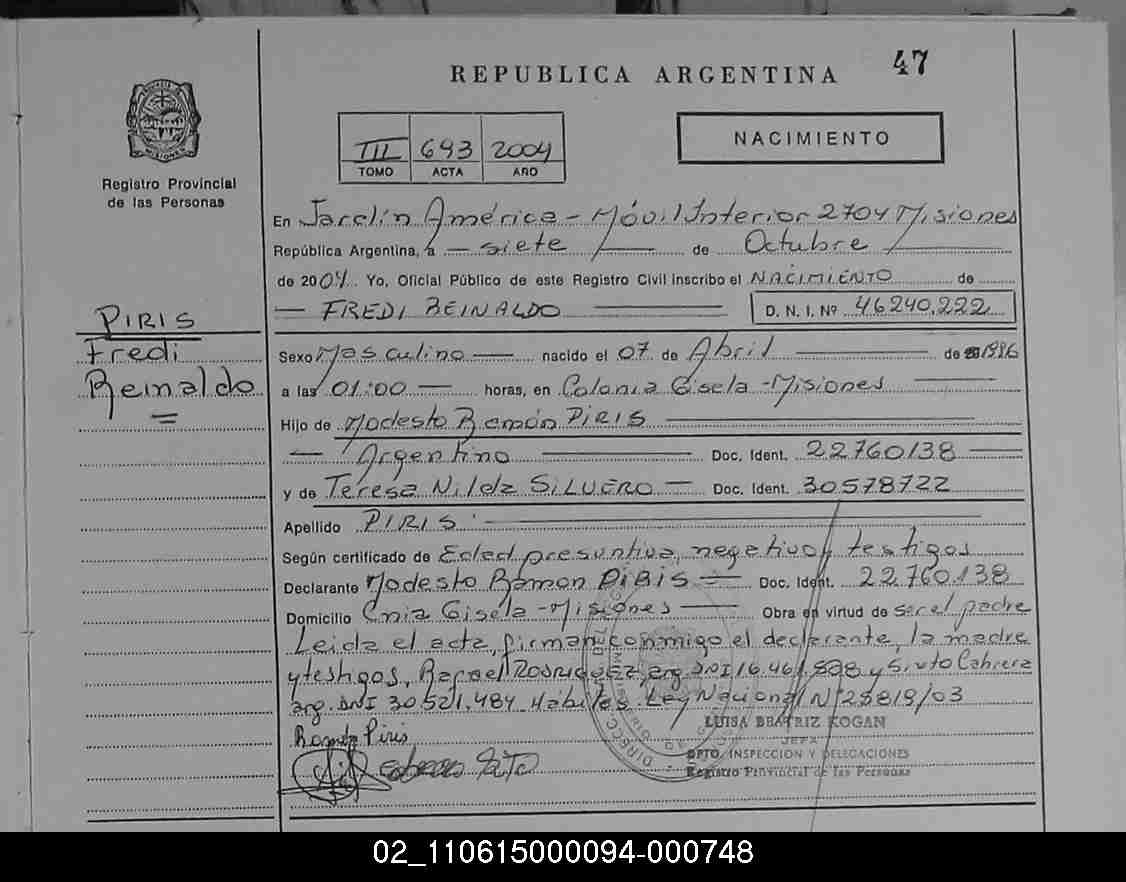 47
REPUBLICA ARGENTINA
NACIMIENTO
III 693 2004
TOMO ACTA AÑO
MISIONES
Registro Provincial
de las Personas
En Jardín América - Móvil Interior 2704 Misiones
República Argentina, a - siete de Octubre
de 2004. Yo, Oficial Público de este Registro Civil inscribo el NACIMIENTO de
- FREDI REINALDO
D. N. I. Nº 46240.222
PIRIS
Fredi
Reinaldo
=
Sexo Masculino - nacido el 07 de Abril de 1996
a las 01:00 - horas, en Colonia Gisela - Misiones
Hijo de Modesto Ramón PIRIS
- Argentino - Doc. Ident. 22760138
y de Teresa Nilda SILVERO - Doc. Ident. 30578722
Apellido PIRIS
Según certificado de Edad presuntiva, negativo y testigos
Declarante Modesto Ramon PIRIS - Doc. Ident. 22.760.138
Domicilio Cnia Gisela - Misiones - Obra en virtud de ser el padre
Leida el acta, firman conmigo el declarante, la madre
y testigos, Rafael Rodriguez, arg. DNI 16.461.828 y Sixto Cabrera
arg. DNI 30.521.484 Hábiles. Ley Nacional Nº 25819/03
LUISA BEATRIZ KOGAN
JEFA
DPTO. INSPECCION Y DELEGACIONES
Registro Provincial de las Personas
Piris
02_110615000094-000748